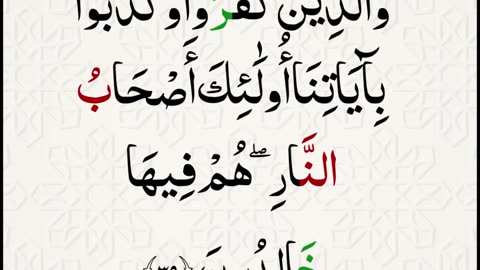 وَالَّذِينَ كَفَرُوا وَكَذَّبُوا
بِآيَاتِنَا أُولَٰئِكَ أَصْحَابُ
النَّارِ ۖ هُمْ فِيهَا
خَالِدُونَ ﴿٣٩﴾